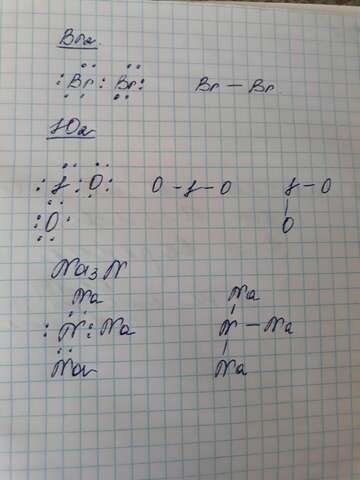 Br₂
:Br:Br: Br – Br.
JO₂
:J:O: O – J – O J – O
:O: O
Na₃N
Na Na
:N:Na N – Na
Na Na